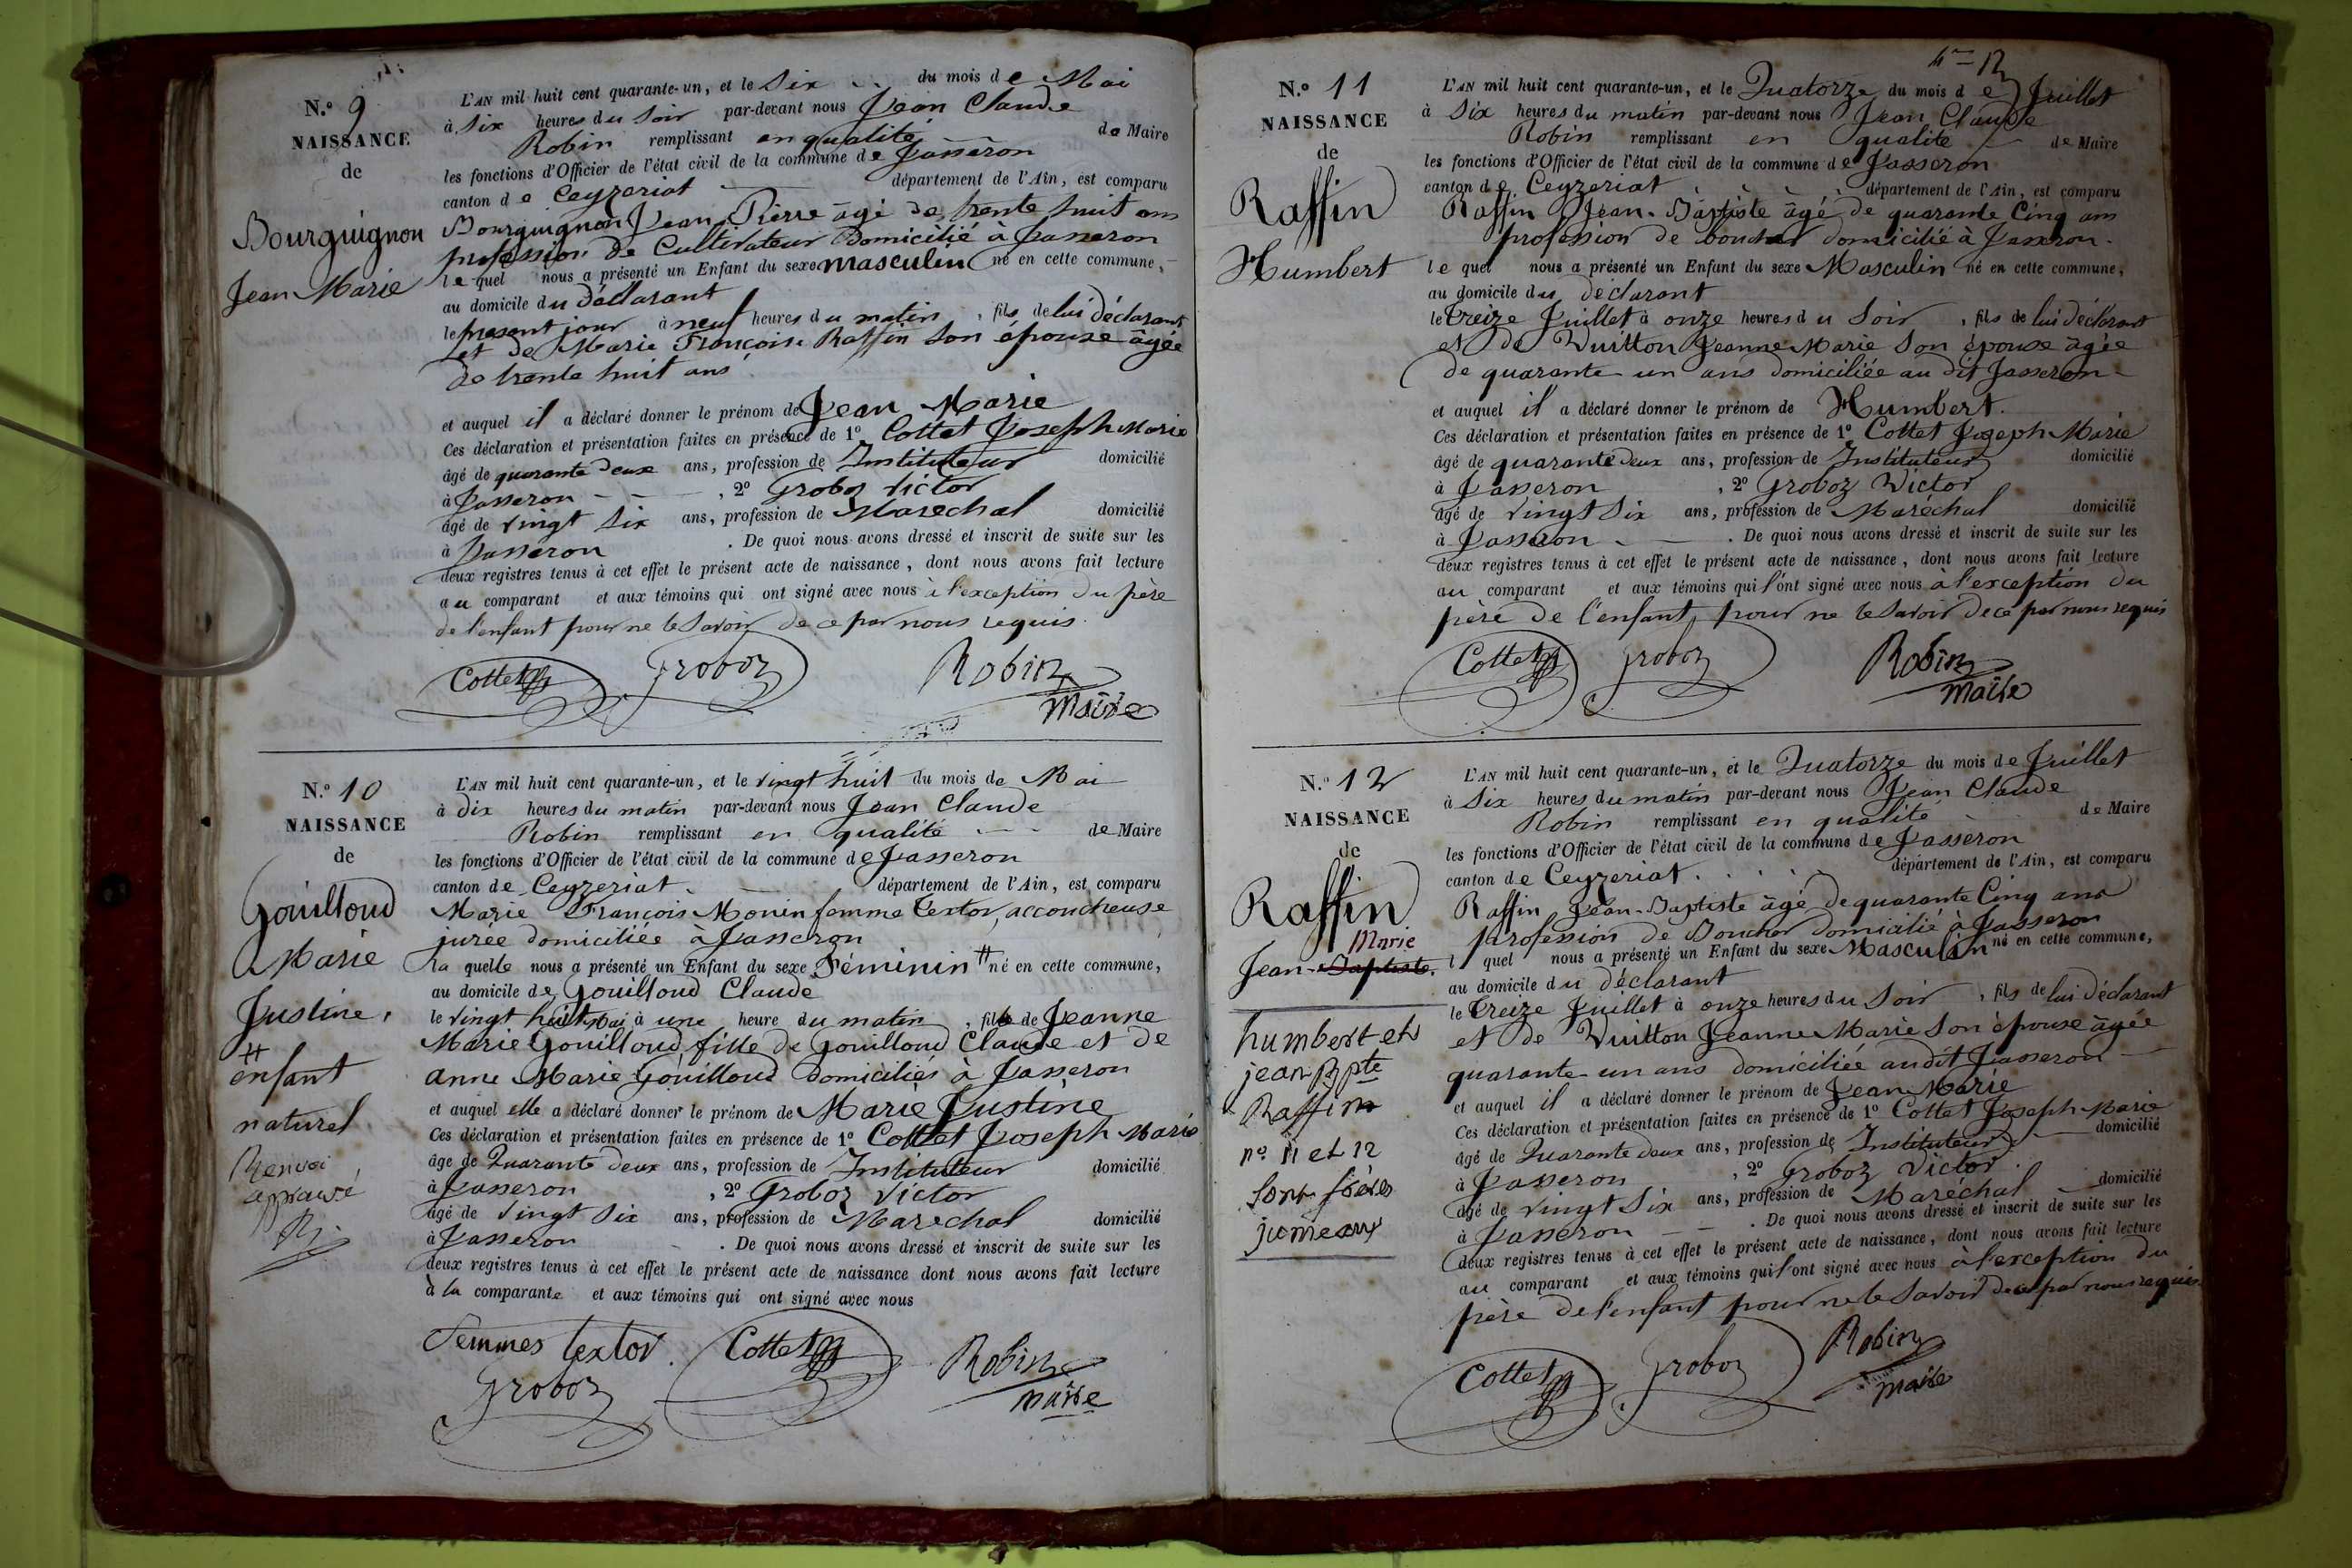 N.o 9
NAISSANCE
de
Bourguignon
Jean Marie
L'AN mil huit cent quarante-un, et le Six du mois de Mai
à Six heures du Soir par-devant nous Jean Claude
Robin remplissant en qualité de Maire
les fonctions d'Officier de l'état civil de la commune de Jasseron
canton de Ceyzeriat département de l'Ain, est comparu
Bourguignon Jean Pierre âgé de trente huit ans
profession de Cultivateur domicilié à Jasseron
lequel nous a présenté un Enfant du sexe masculin né en cette commune,
au domicile du déclarant
le present jour à neuf heures du matin, fils de lui déclarant
et de Marie Françoise Raffin Son épouse âgée
de trente huit ans
et auquel il a déclaré donner le prénom de Jean Marie
Ces déclaration et présentation faites en présence de 1o Cottet Joseph Marie
âgé de quarante deux ans, profession de Instituteur domicilié
à Jasseron, 2o Groboz Victor
âgé de vingt Six ans, profession de Maréchal domicilié
à Jasseron. De quoi nous avons dressé et inscrit de suite sur les
deux registres tenus à cet effet le présent acte de naissance, dont nous avons fait lecture
au comparant et aux témoins qui ont signé avec nous à l'exception du père
de l'enfant pour ne le Savoir de ce par nous requis.
Cottet Groboz Robin
Maire
N.o 10
NAISSANCE
de
Gouilloud
Marie
Justine,
#
enfant
naturel
Renvoi
approuvé
Rj
L'AN mil huit cent quarante-un, et le vingt huit du mois de Mai
à dix heures du matin par-devant nous Jean Claude
Robin remplissant en qualité de Maire
les fonctions d'Officier de l'état civil de la commune de Jasseron
canton de Ceyzeriat. département de l'Ain, est comparu
Marie François Monin femme Textor, accoucheuse
jurée domiciliée à Jasseron
La quelle nous a présenté un Enfant du sexe Féminin # né en cette commune,
au domicile de Gouilloud Claude
le vingt huit Mai à une heure du matin, fille de Jeanne
Marie Gouilloud, fille de Gouilloud Claude et de
anne Marie Gouilloud domiciliés à Jasseron
et auquel elle a déclaré donner le prénom de Marie Justine
Ces déclaration et présentation faites en présence de 1o Cottet Joseph Marie
âge de Quarante deux ans, profession de Instituteur domicilié
à Jasseron, 2o Groboz Victor
âgé de vingt Six ans, profession de Maréchal domicilié
à Jasseron. De quoi nous avons dressé et inscrit de suite sur les
deux registres tenus à cet effet le présent acte de naissance dont nous avons fait lecture
à la comparante et aux témoins qui ont signé avec nous
Femmes textor. Cottet Robin
Groboz maire
N.o 11
NAISSANCE
de
Raffin
Humbert
L'AN mil huit cent quarante-un, et le Quatorze du mois de Juillet
à Six heures du matin par-devant nous Jean Claude
Robin remplissant en qualité de Maire
les fonctions d'Officier de l'état civil de la commune de Jasseron
canton de Ceyzeriat département de l'Ain, est comparu
Raffin Jean-Baptiste âgé de quarante Cinq ans
profession de boucher domicilié à Jasseron.
le quel nous a présenté un Enfant du sexe Masculin né en cette commune,
au domicile du déclarant
le treize Juillet à onze heures du Soir, fils de lui déclarant
et de Vuitton Jeanne Marie Son épouse âgée
de quarante un ans domiciliée au dit Jasseron
et auquel il a déclaré donner le prénom de Humbert.
Ces déclaration et présentation faites en présence de 1o Cottet Joseph Marie
âgé de quarante deux ans, profession de Instituteur domicilié
à Jasseron, 2o Groboz Victor
âgé de vingt Six ans, profession de Maréchal domicilié
à Jasseron. De quoi nous avons dressé et inscrit de suite sur les
deux registres tenus à cet effet le présent acte de naissance, dont nous avons fait lecture
au comparant et aux témoins qui l'ont signé avec nous à l'exception du
père de l'enfant pour ne le Savoir de ce par nous requis
Cottet Groboz Robin
Maire
N.o 12
NAISSANCE
de
Raffin
Marie
Jean-Baptiste.
humbert et
jean Bpte
Raffin
no 11 et 12
Sont frères
jumeaux
L'AN mil huit cent quarante-un, et le Quatorze du mois de Juillet
à Six heures du matin par-devant nous Jean Claude
Robin remplissant en qualité de Maire
les fonctions d'Officier de l'état civil de la commune de Jasseron
canton de Ceyzeriat. département de l'Ain, est comparu
Raffin Jean-Baptiste âgé de quarante Cinq ans
profession de Boucher domicilié à Jasseron
l quel nous a présenté un Enfant du sexe Masculin né en cette commune,
au domicile du déclarant
le treize Juillet à onze heures du Soir, fils de lui déclarant
et de Vuitton Jeanne Marie Son épouse âgée
quarante un ans domiciliée au dit Jasseron
et auquel il a déclaré donner le prénom de Jean Marie
Ces déclaration et présentation faites en présence de 1o Cottet Joseph Marie
âgé de Quarante deux ans, profession de Instituteur domicilié
à Jasseron, 2o Groboz Victor.
âgé de vingt Six ans, profession de Maréchal domicilié
à Jasseron. De quoi nous avons dressé et inscrit de suite sur les
deux registres tenus à cet effet le présent acte de naissance, dont nous avons fait lecture
au comparant et aux témoins qui l'ont signé avec nous à l'exception du
père de l'enfant pour ne le Savoir de ce par nous requis
Cottet Groboz Robin
maire